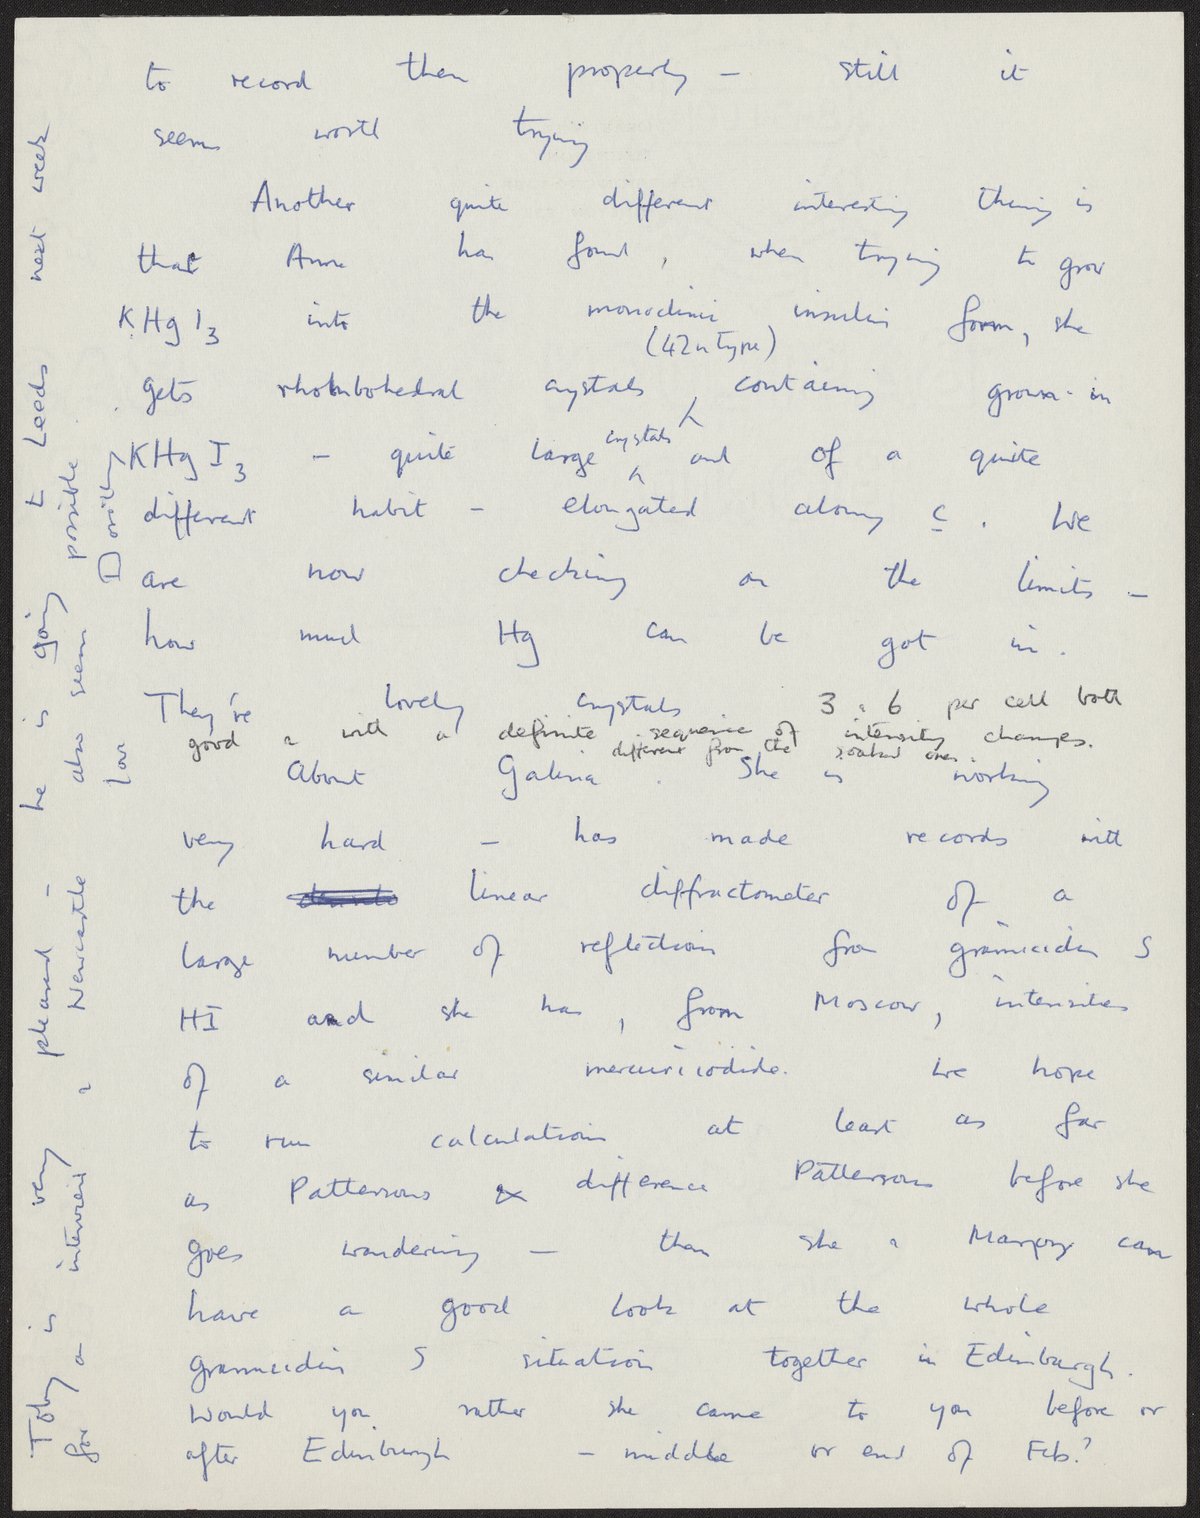 to record them properly - still it
seems worth trying
Another quite different interesting thing is
that Anne has found, when trying to grow
KHgI3 into the monoclinic insulin form, she
(4Zn type)
gets rhombohedral crystals containing grown-in
KHgI3 - quite large crystals and of a quite
different habit - elongated along c. We
are now checking on the limits -
how much Hg can be got in.
They're lovely crystals 3 & 6 per cell both
good & with a definite sequence of intensity changes.
different from the soaked ones.
About Galina. She is working
very hard - has made records with
the linear diffractometer of a
large number of reflections from gramicidin S
HI and she has, from Moscow, intensities
of a similar mercuriiodide. We hope
to run calculations at least as far
as Pattersons & difference Pattersons before she
goes wandering - then she & Marjory can
have a good look at the whole
gramicidin S situation together in Edinburgh.
Would you rather she came to you before or
after Edinburgh - middle or end of Feb.?
Toby is very pleased - he is going to Leeds next week
for an interview & Newcastle also seems possible
Love Dorothy